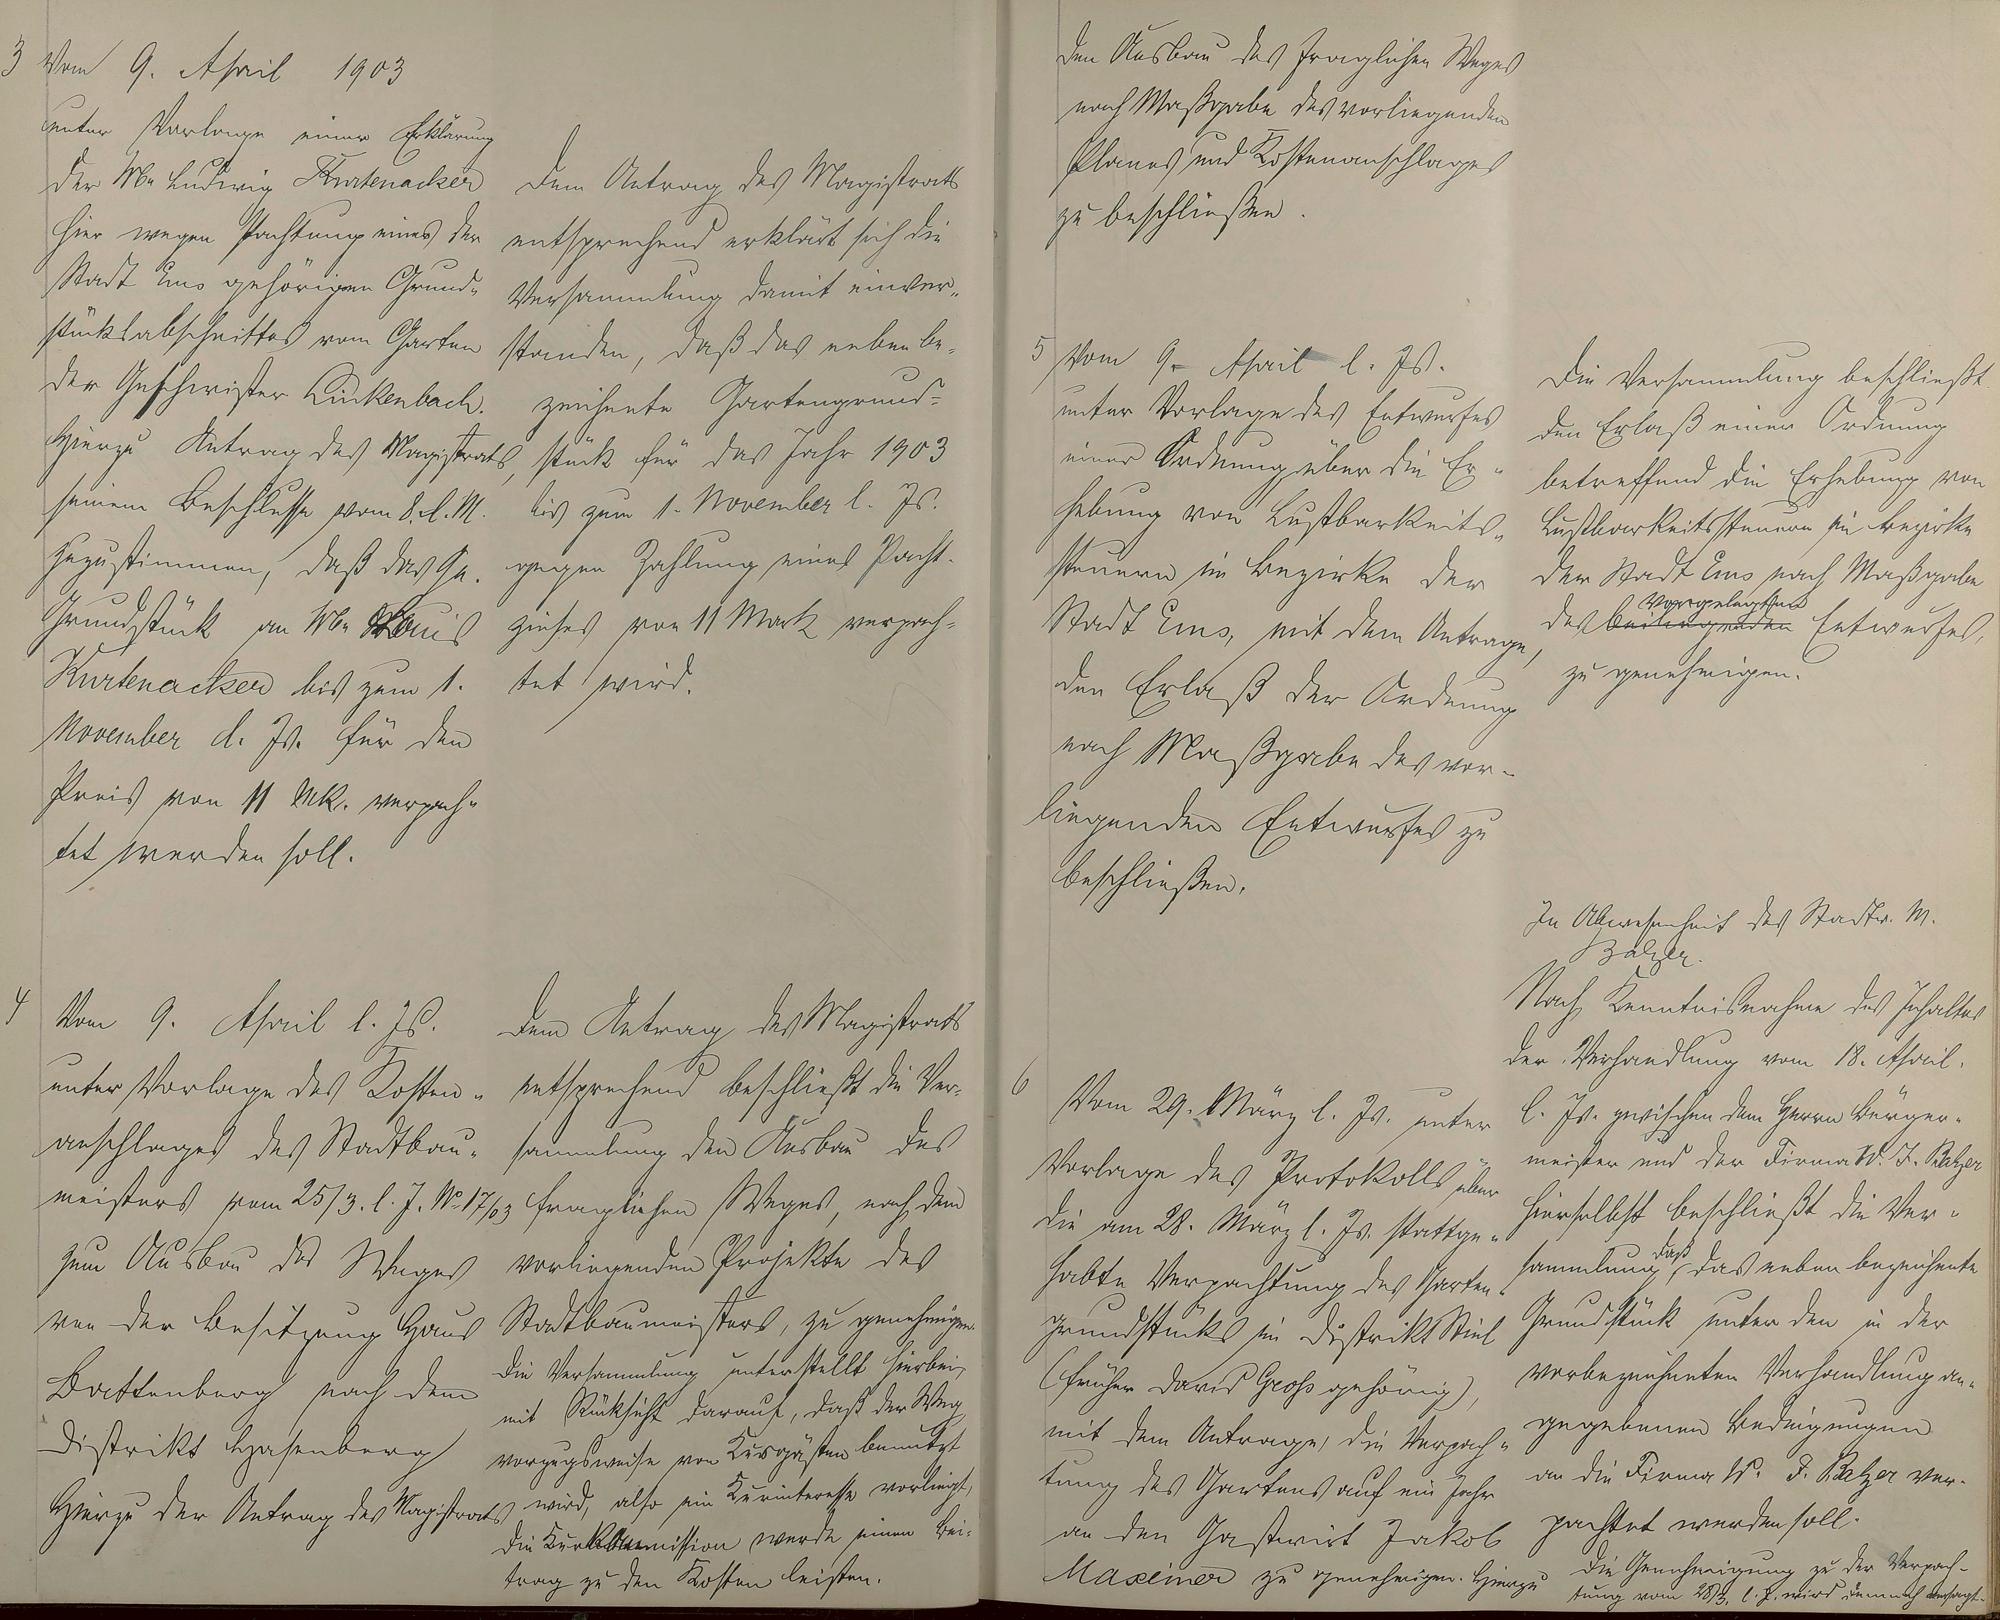 3 Vom 9. April 1903
unter Vorlage einer Erklärung
der Ww Ludwig Kurtenacker
hier wegen Pachtung eines der
Stadt Ems gehörigen Grund-
stücksabschnittes vom Garten
der Geschwister Linkenbach.
Hierzu Antrag des Magistrats,
seinem Beschlusse vom 8. l. M.
zuzustimmen, daß das Ge.
Grundstück an Ww Louis
Kurtenacker bis zum 1.
November d. Js. für den
Preis von 11 Mk. verpach-
tet werden soll.
Dem Antrag des Magistrats
entsprechend erklärt sich die
Versammlung damit einver-
standen, daß das neben be-
zeichnete Gartengrund-
stück für das Jahr 1903
bis zum 1. November l. Js.
gegen Zahlung eines Pacht-
zinses von 11 Mark verpach-
tet wird.
4 Vom 9. April l. Js.
unter Vorlage des Kosten-
anschlages des Stadtbau-
meisters vom 25/3. l. J. No 17/03
zum Ausbau des Weges
von der Besitzung Haus
Battenberg nach dem
Distrikt Hasenberg
Hierzu der Antrag des Magistrats
Dem Antrag des Magistrats
entsprechend beschließt die Ver-
sammlung den Ausbau des
fraglichen Weges, nach dem
vorliegenden Projekte des
Stadtbaumeisters, zu genehmigen.
Die Versammlung unterstellt hierbei,
mit Rücksicht darauf, daß der Weg
vorzugsweise von Kurgästen benutzt
wird, also ein Kurinteresse vorliegt,
die Kurkommission werde einen Bei-
trag zu den Kosten leisten.
den Ausbau des fraglichen Weges
nach Maßgabe des vorliegenden
Planes und Kostenanschlages
zu beschließen.
5 Vom 9. April l. Js.
unter Vorlage des Entwurfes
einer Ordnung über die Er-
hebung von Lustbarkeits-
steuern im Bezirke der
Stadt Ems, mit dem Antrage,
den Erlaß der Ordnung
nach Maßgabe des vor-
liegenden Entwurfes zu
beschließen.
Die Versammlung beschließt
den Erlaß einer Ordnung
betreffend die Erhebung von
Lustbarkeitssteuern im Bezirke
der Stadt Ems nach Maßgabe
vorgelegten
des beiliegenden Entwurfes,
zu genehmigen.
6 Vom 29. März l. Js. unter
Vorlage des Protokolls über
die am 28. März l. Js. stattge-
habte Verpachtung des Garten-
grundstücks im Distrikt Wiel
(früher David Groß gehörig),
mit dem Antrage, die Verpach-
tung des Gartens auf ein Jahr
an den Gastwirt Jakob
Maxeiner zu genehmigen. Hierzu
In Abwesenheit des Stadtv. M.
Balzer.
Nach Kenntnisnahme des Inhaltes
der Verhandlung vom 18. April.
l. Js. zwischen dem Herrn Bürger-
meister und der Firma W. F. Balzer
hierselbst beschließt die Ver-
sammlung, daß das neben bezeichnete
Grundstück unter den in der
vorbezeichneten Verhandlung an-
gegebenen Bedingungen
an die Firma W. F. Balzer ver-
pachtet werden soll.
Die Genehmigung zu der Verpach-
tung vom 28/3. l. J. wird demnach versagt.